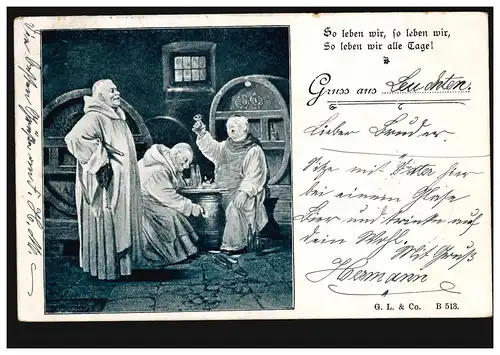 So leben wir, so leben wir,
So leben wir alle Tage!
Gruss aus Leuchten.
Lieber Bruder.
Sitze mit Vater hier
bei einem Glase
Bier und trinke auf
dein Wohl.
Mit Gruß
Hermann
G. L. & Co. B 513.